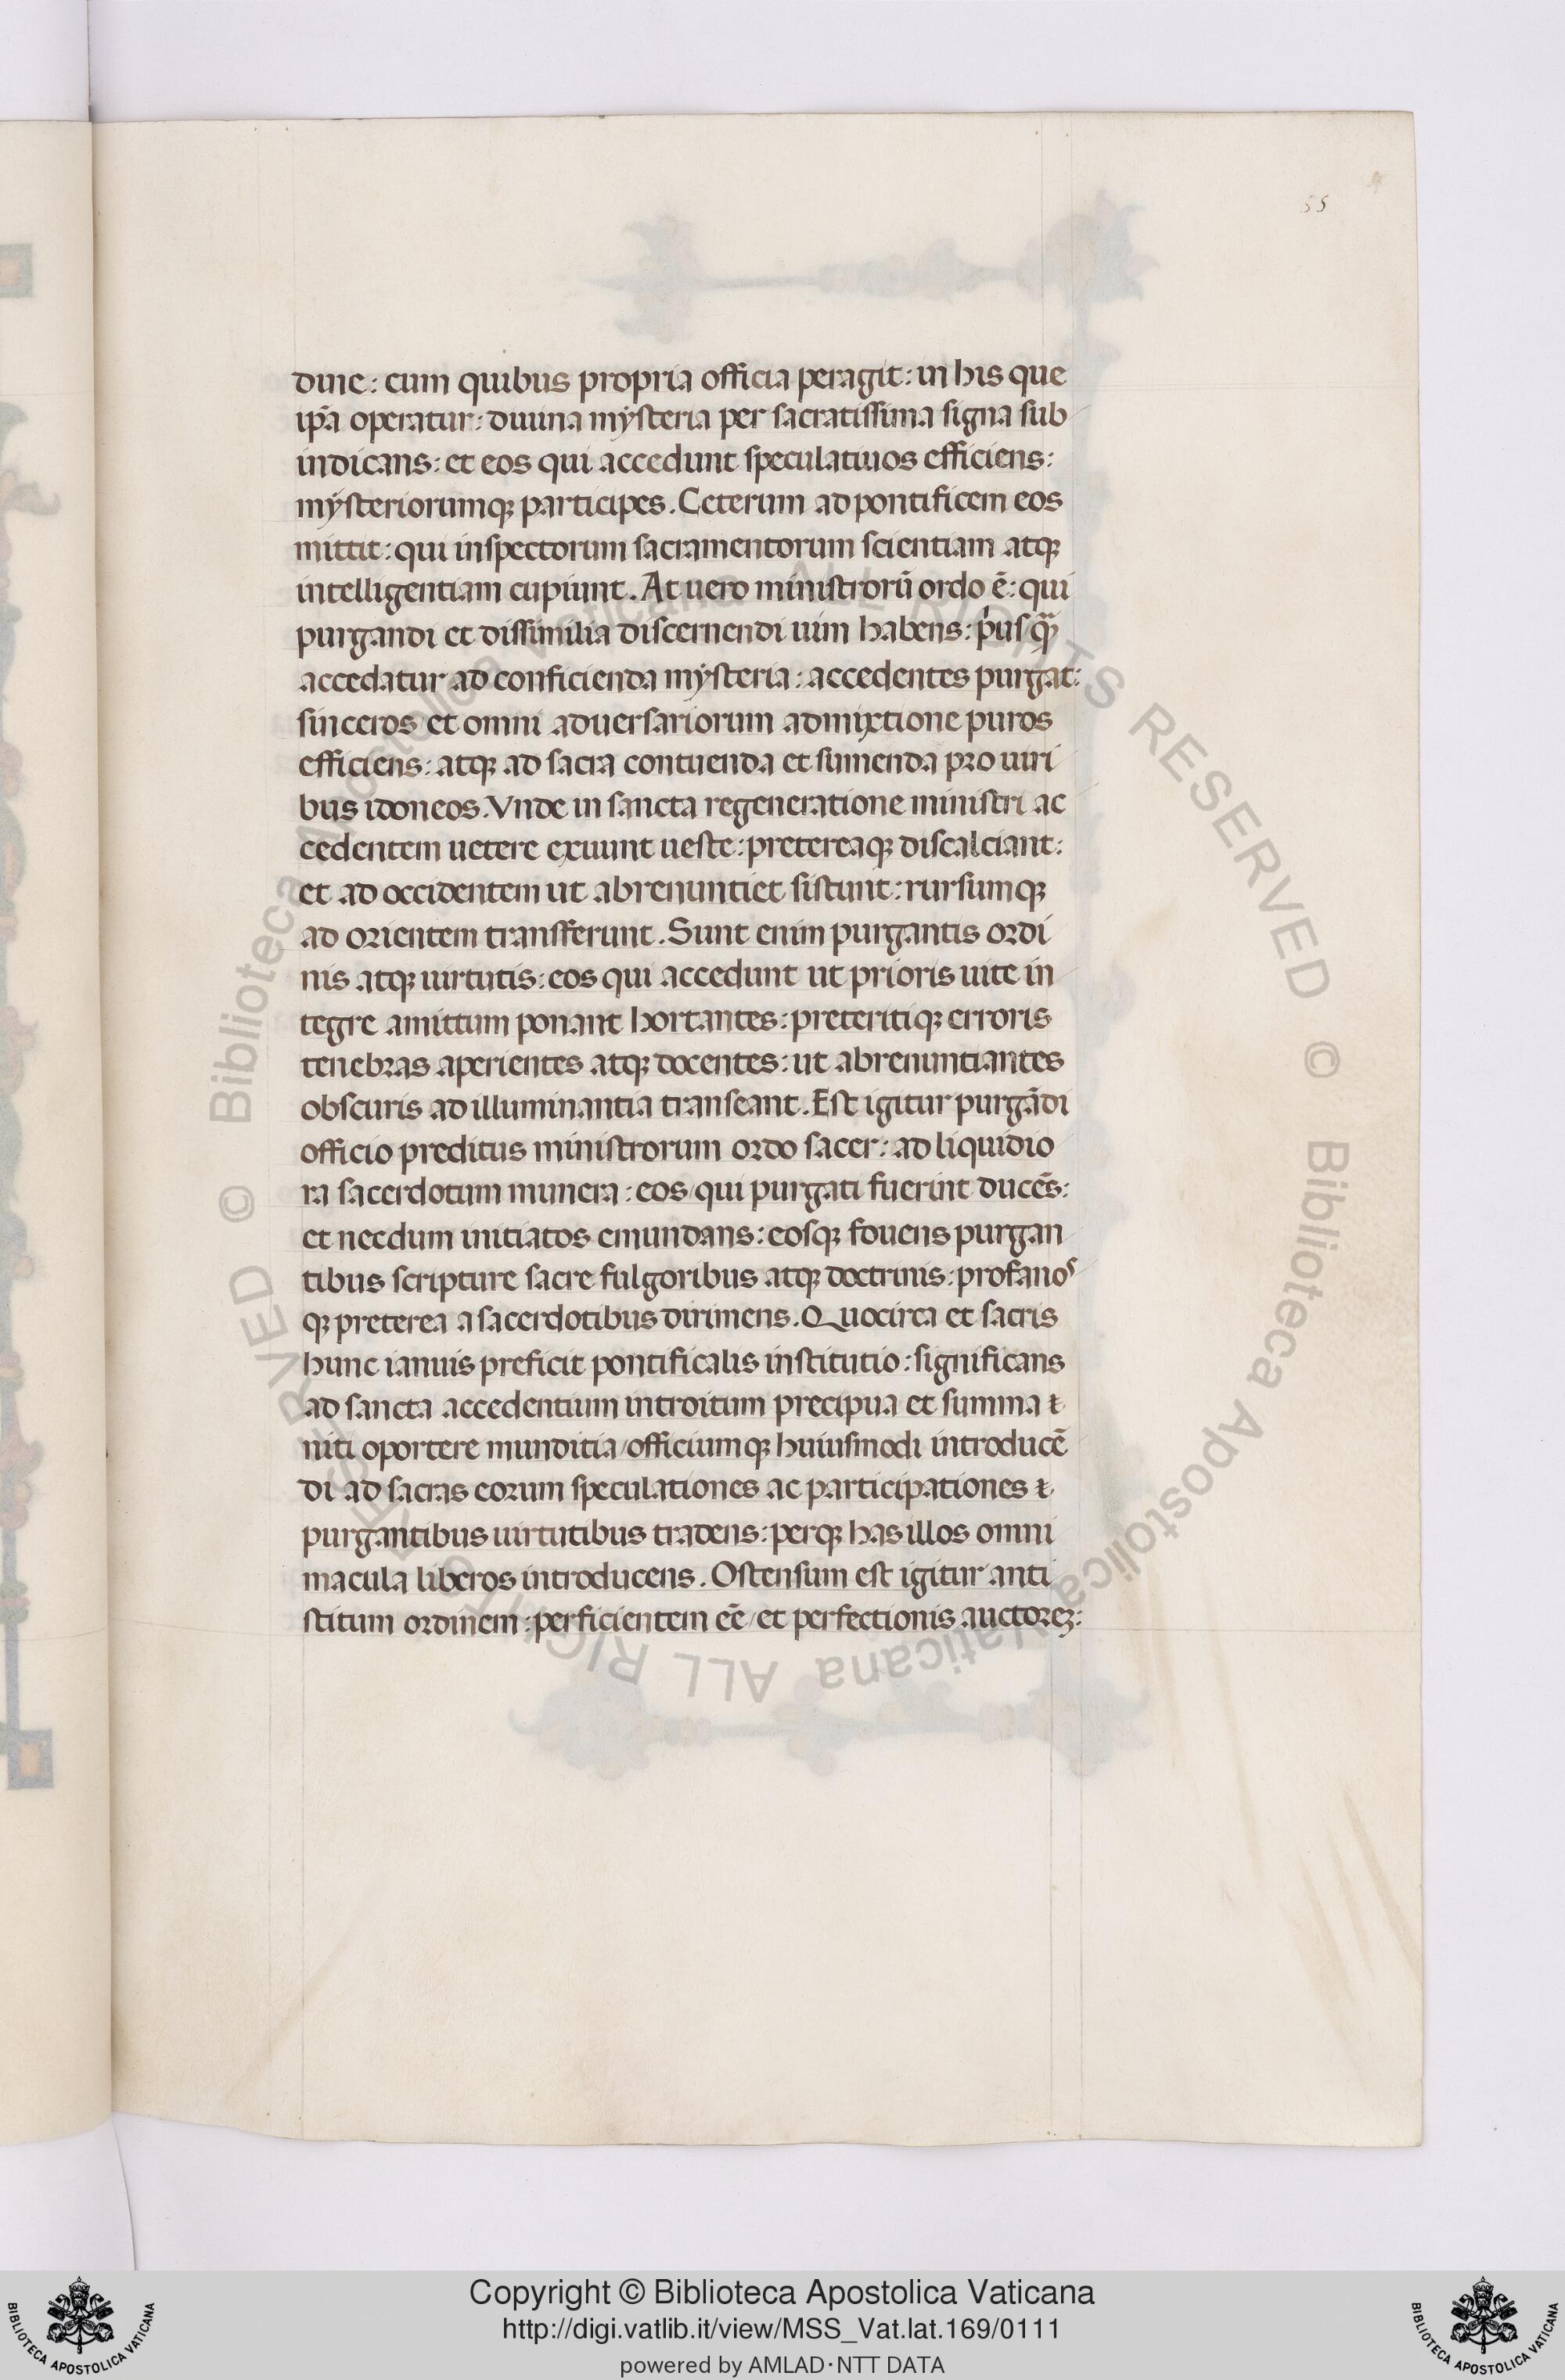 55
dine: cum quibus propria officia peragit: in his que
ip̃a operatur: diuina mẏsteria per sacratissima signa sub
indicans: et eos qui accedunt speculatiuos efficiens:
mẏsteriorumqꝫ participes. Ceterum ad pontificem eos
mittit: qui inspectorum sacramentorum scientiam atqꝫ
intelligentiam cupiunt. At uero ministrorū ordo ē: qui
purgandi et dissimilia discernendi uim habens: pͥus qᷓꝫ
accedatur ad conficienda mẏsteria: accedentes purgat:
sinceros et omni aduersariorum admixtione puros
efficiens: atqꝫ ad sacra contuenda et sumenda pro uiri
bus idoneos. Vnde in sancta regeneratione ministri ac
cedentem uetere exuunt ueste: pretereaqꝫ discalciant:
et ad occidentem ut abrenuntiet sistunt: rursumqꝫ
ad orientem transferunt. Sunt enim purgantis ordi
nis atqꝫ uirtutis: eos qui accedunt ut prioris uite in
tegre amittum ponant hortantes: preteritiqꝫ erroris
tenebras aperientes atqꝫ docentes: ut abrenuntiantes
obscuris ad illuminantia transeant. Est igitur purgādi
officio preditus ministrorum ordo sacer: ad liquidio
ra sacerdotum munera: eos qui purgati fuerint ducēs:
et necdum initiatos emundans: eosqꝫ fouens purgan
tibus scripture sacre fulgoribus atqꝫ doctrinis: profanos
qꝫ preterea a sacerdotibus dirimens. Quocirca et sacris
hunc ianuis preficit pontificalis institutio: significans
ad sancta accedentium introitum precipua et summa ⁊
niti oportere munditia/officiumqꝫ huiusmodi introducē
di ad sacras eorum speculationes ac participationes ⁊
purgantibus uirtutibus tradens: perqꝫ has illos omni
macula liberos introducens. Ostensum est igitur anti
stitum ordinem: perficientem eē/et perfectionis auctoreꝫ:
© Biblioteca Apostolica Vaticana ALL RIGHTS RESERVED © Biblioteca Apostolica Vaticana ALL RIGHTS RESERVED
Copyright © Biblioteca Apostolica Vaticana
http://digi.vatlib.it/view/MSS_Vat.lat.169/0111
powered by AMLAD·NTT DATA
BIBLIOTECA APOSTOLICA VATICANA
BIBLIOTECA APOSTOLICA VATICANA